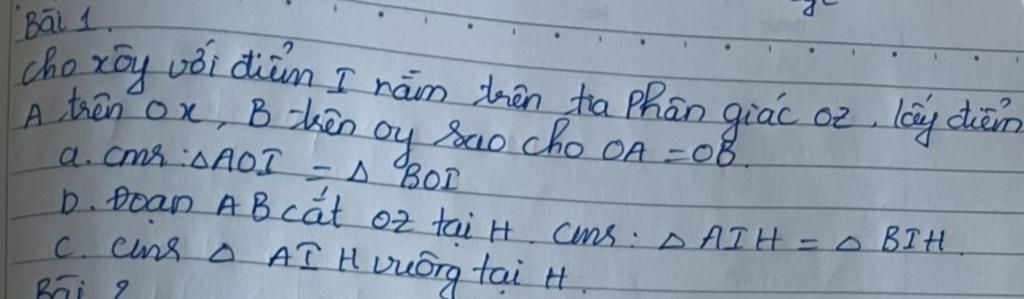 Bài 1.
Cho xÔy với điểm I nằm trên tia phân giác Oz, lấy điểm
A trên Ox, B trên Oy sao cho OA = OB.
a. cmr: △AOI = △ BOI
b. Đoạn AB cắt Oz tại H. cmr: △ AIH = △ BIH.
c. cmr △ AIH vuông tại H.
Bài 2